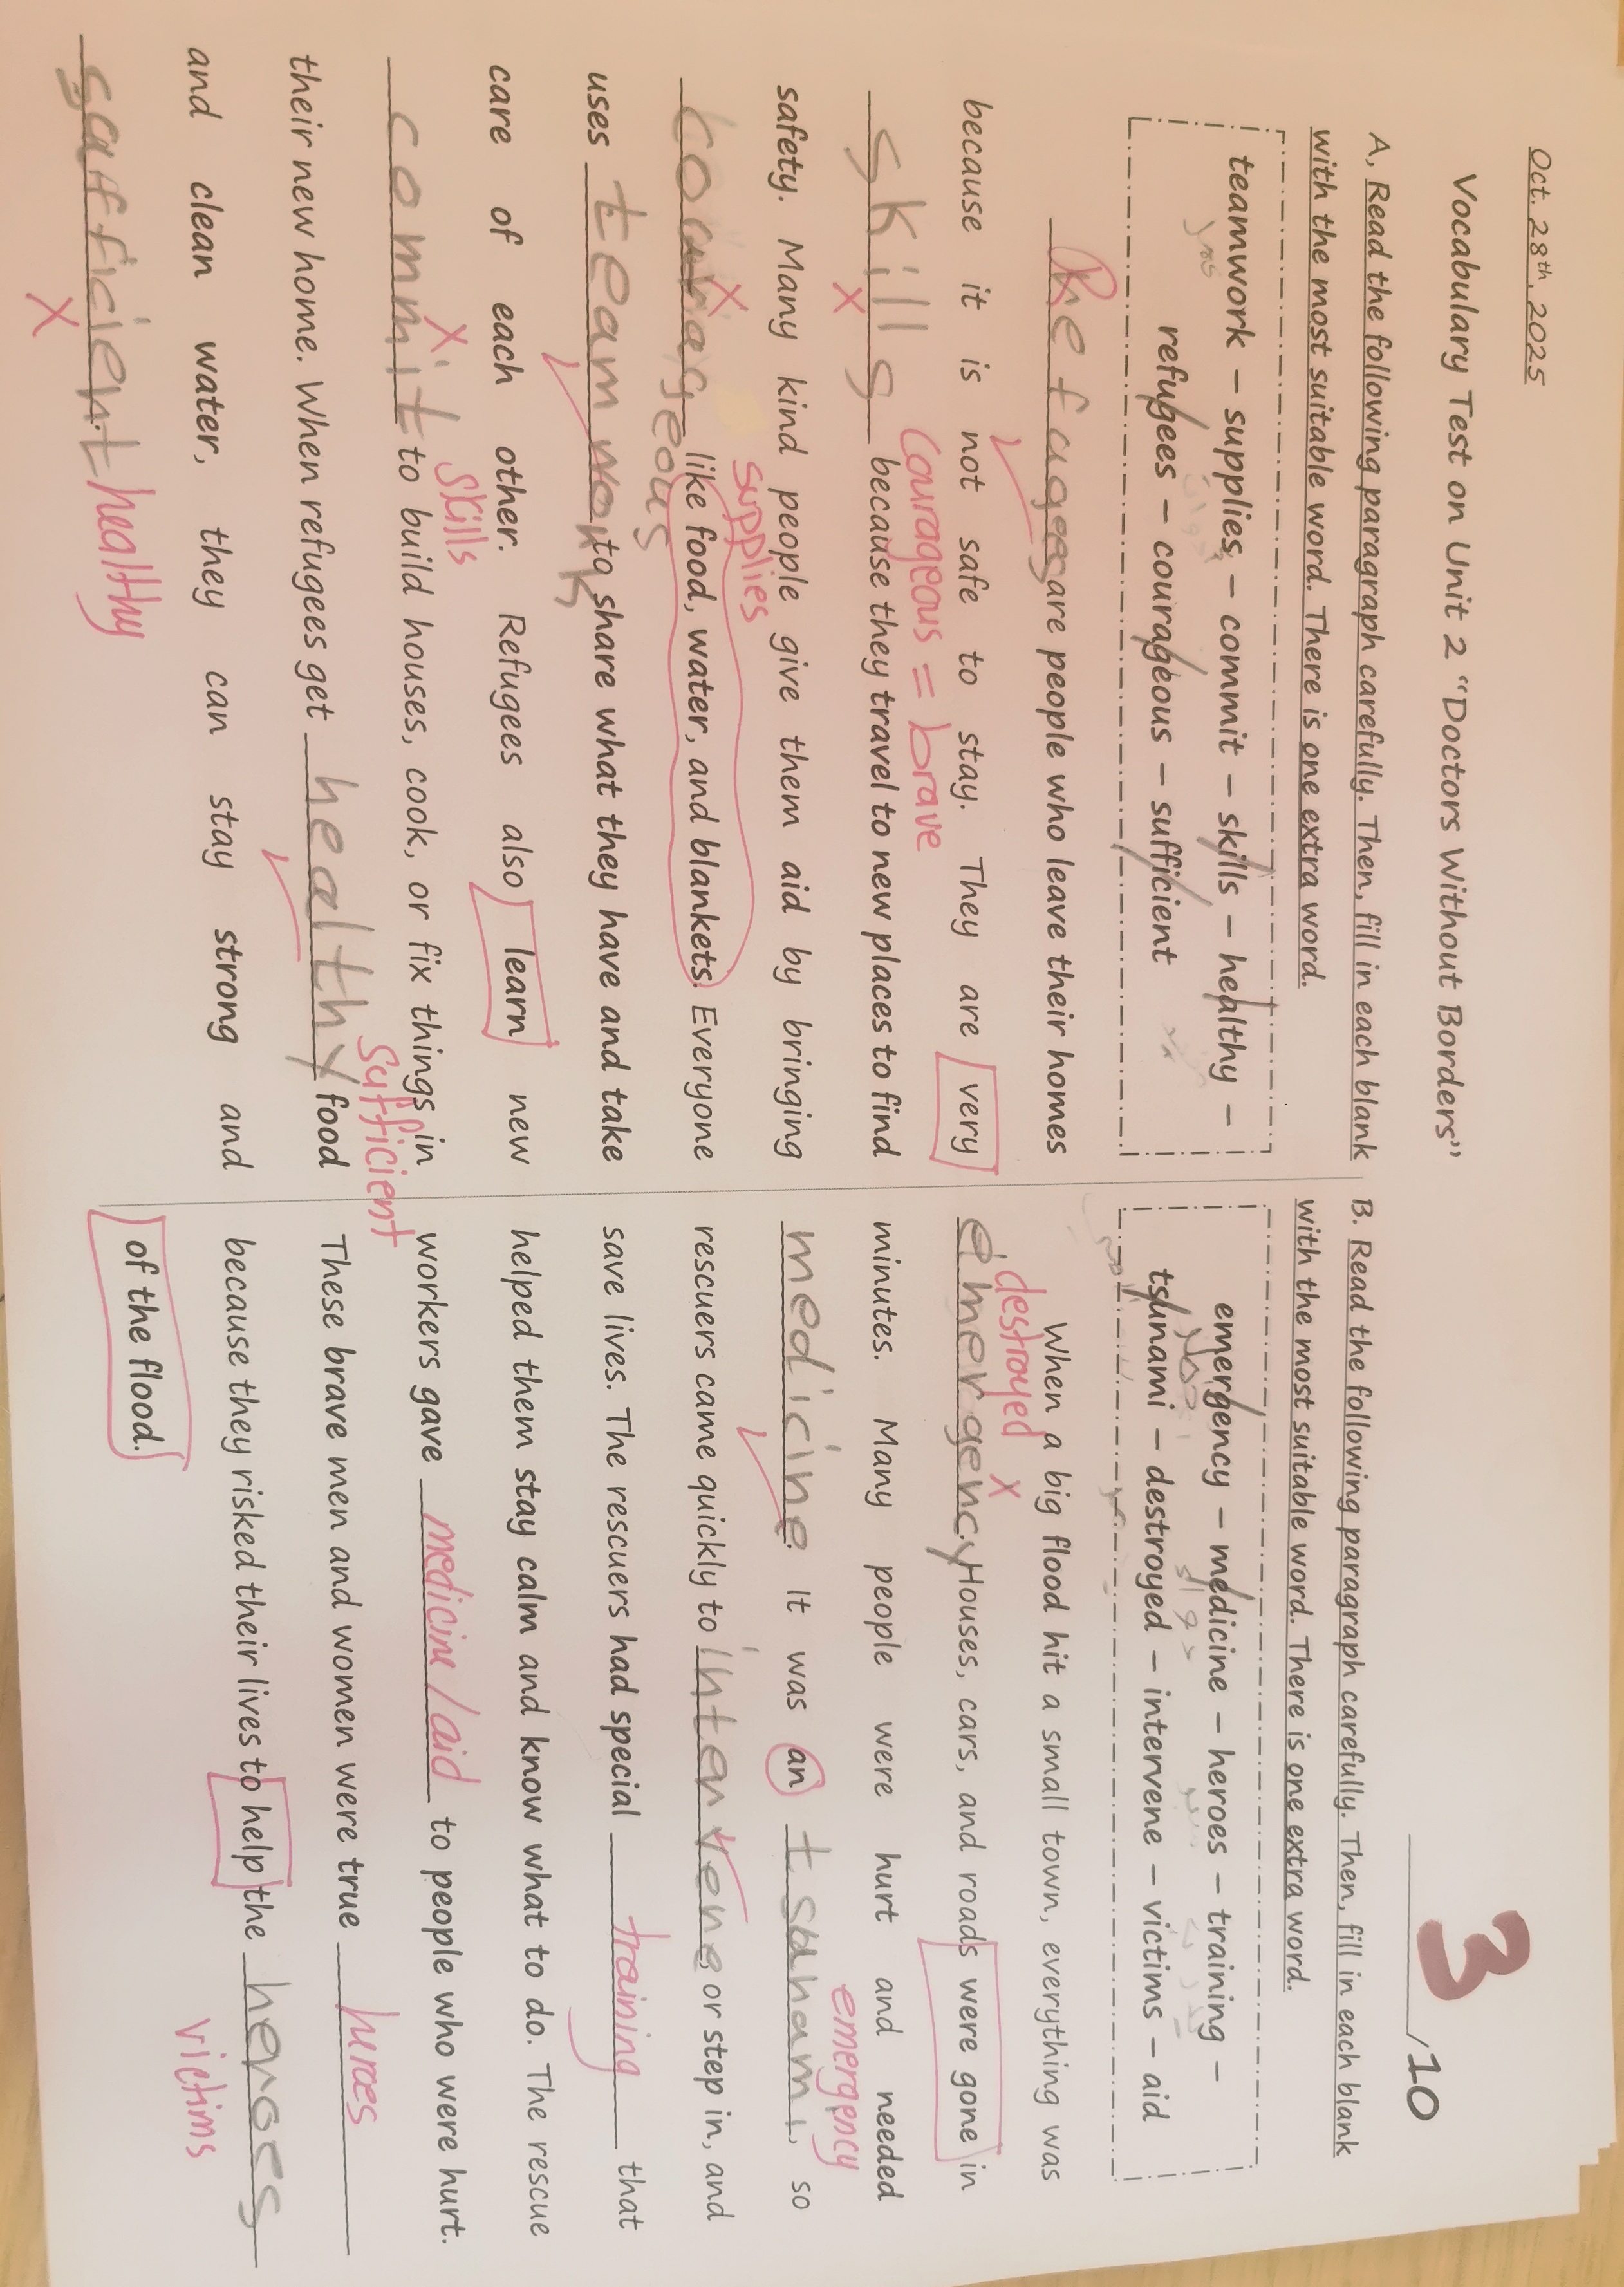 Oct. 28th, 2025
Vocabulary Test on Unit 2 “Doctors Without Borders”
3 /10
A, Read the following paragraph carefully. Then, fill in each blank
with the most suitable word. There is one extra word.
teamwork – supplies – commit – skills – healthy –
refugees – courageous – sufficient
Refugees are people who leave their homes
because it is not safe to stay. They are very
skills X because they travel to new places to find
courageous = brave
safety. Many kind people give them aid by bringing
courageous X like food, water, and blankets. Everyone
supplies
uses teamwork to share what they have and take
care of each other. Refugees also learn new
commit X to build houses, cook, or fix things in
skills
their new home. When refugees get healthy food
sufficient
and clean water, they can stay strong and
sufficient. X healthy
B. Read the following paragraph carefully. Then, fill in each blank
with the most suitable word. There is one extra word.
emergency – medicine – heroes – training –
tsunami – destroyed – intervene – victims – aid
When a big flood hit a small town, everything was
destroyed X
emergency. Houses, cars, and roads were gone in
minutes. Many people were hurt and needed
medicine. It was an tsunami, so
emergency
rescuers came quickly to intervene, or step in, and
save lives. The rescuers had special training that
helped them stay calm and know what to do. The rescue
workers gave medicine / aid to people who were hurt.
These brave men and women were true heroes
because they risked their lives to help the heroes
victims
of the flood.